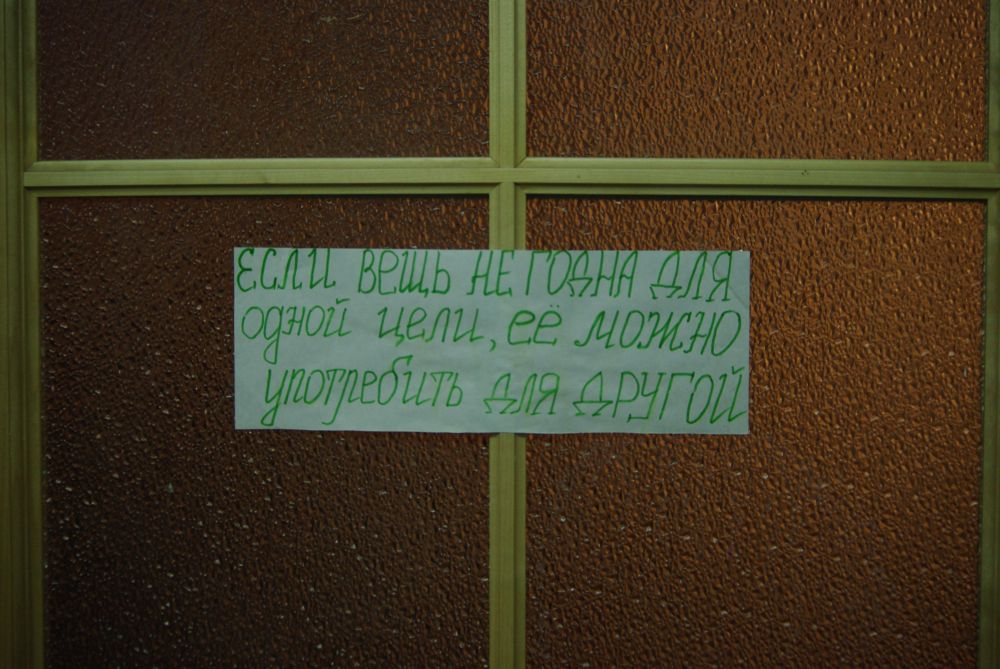 ЕСЛИ ВЕЩЬ НЕ ГОДНА ДЛЯ
одной цели, её можно
употребить для ДРУГОЙ